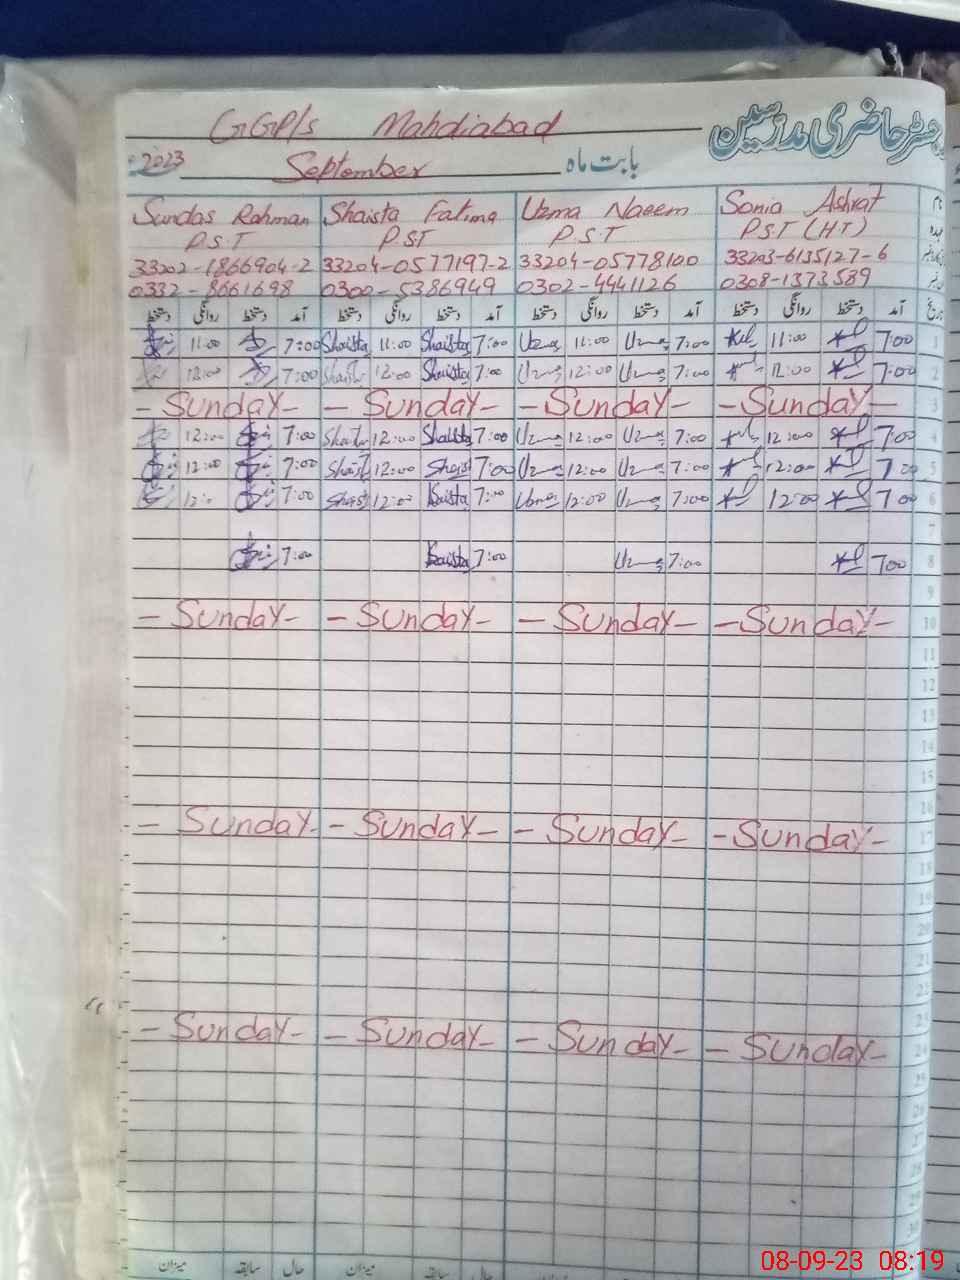 GGP/s Mahdiabad
رجسٹر حاضری مدرسین
2023 September بابت ماہ
Sundas Rahman Shaista Fatima Uzma Naeem Sonia Ashraf نام
P.S.T P.S.T P.S.T P.S.T (HT) عہدہ
33202-1866904-2 33204-0577197-2 33204-05778100 33203-6135127-6
0332-8661698 0300-5386949 0302-4441126 0308-1373589
دستخط روانگی دستخط آمد دستخط روانگی دستخط آمد دستخط روانگی دستخط آمد دستخط روانگی دستخط آمد تاریخ
11:00 7:00 Shaista 11:00 Shaista 7:00 Uzma 11:00 Uzma 7:00 11:00 7:00 1
12:00 7:00 Shaista 12:00 Shaista 7:00 Uzma 12:00 Uzma 7:00 12:00 7:00 2
- Sunday - - Sunday - - Sunday - - Sunday - 3
12:00 7:00 Shaista 12:00 Shaista 7:00 Uzma 12:00 Uzma 7:00 12:00 7:00 4
12:00 7:00 Shaista 12:00 Shaista 7:00 Uzma 12:00 Uzma 7:00 12:00 7:00 5
12:0 7:00 Shaista 12:00 Shaista 7:00 Uzma 12:00 Uzma 7:00 12:00 7:00 6
7
7:00 Shaista 7:00 Uzma 7:00 7:00 8
9
- Sunday - - Sunday - - Sunday - - Sunday - 10
11
12
13
14
15
16
- Sunday - - Sunday - - Sunday - - Sunday - 17
18
19
20
21
22
23
- Sunday - - Sunday - - Sunday - - Sunday - 24
25
26
27
28
29
30
میزان سابقہ حال میزان سابقہ حال
08-09-23 08:19